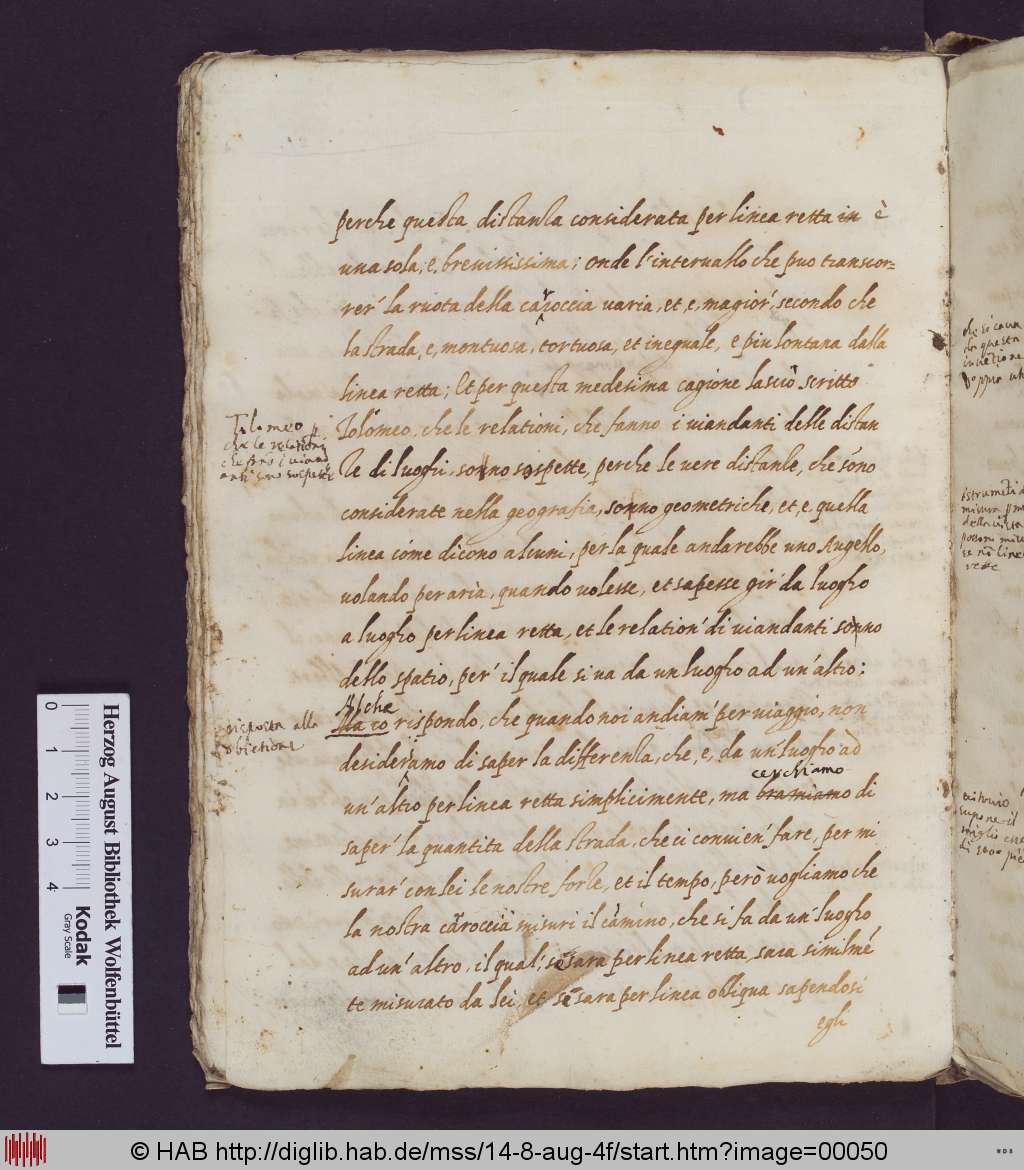 perche questa distanza considerata per linea retta in è
una sola, e, brevissima; onde l'intervallo che puo transcor=
rer' la ruota della carroccia varia, et, e, magior', secondo che
la strada, e, montuosa, tortuosa, et ineguale, e piu lontana dalla
linea retta; Et per questa medesima cagione lasciò scritto
Tolomeo, che le relationi, che fanno i viandanti delle distan
ze di luoghi, sonno sospette, perche le vere distanze, che sono
considerate nella geografia, sonno geometriche, et, e, quella
linea cóme dicono alcuni, per la quale andarebbe uno Augello,
volando per aria, quando volesse, et sapesse gir' da luogho
a luogho per linea retta, et le relation' di viandanti sonno
dello spatio, per' il quale si va da un luogho ad un' altro:
Alche
io rispondo, che quando noi andiam' per viaggio, non
desideramo di saper la differenza, che, e, da un' luogho ad
cerchiamo
un' altro per linea retta simplicimente, ma bramiamo di
saper' la quantita della strada, che ci convien' fare, per mi
surar' con lei le nostre forze, et il tempo, però vogliamo che
la nostra carroccia misuri il camino, che si fa da un' luogho
ad un' altro, il qual', se sara per linea retta, sara similmē
te misurato da lei, et se sara per linea obliqua sapendosi
egli
Tolomeo
che le relationi
che fāno i viand
anti sono sospette
risposta alla
obietione
che si cava
da questa
inventione
Doppo
Istrumēti
misura
della vista
possono
se nō linee
rette
supone il
miglio
di 5000 pie
0 1 2 3 4
Kodak
Gray Scale
Herzog August Bibliothek Wolfenbüttel
© HAB http://diglib.hab.de/mss/14-8-aug-4f/start.htm?image=00050